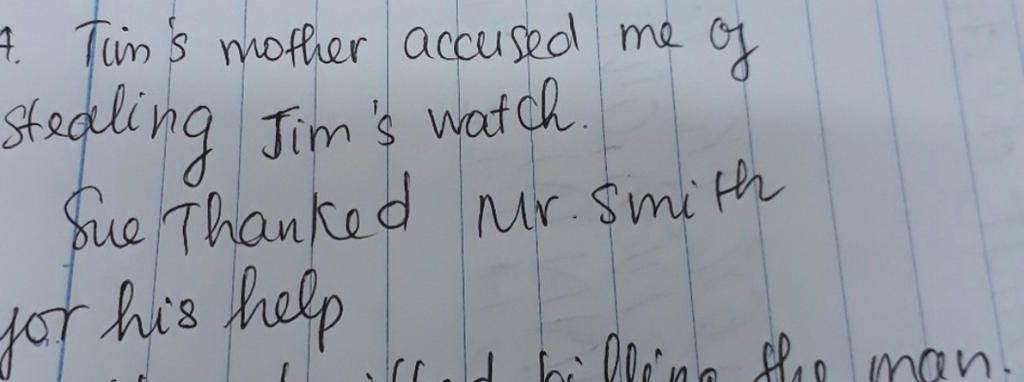 7. Tim's mother accused me of
stealing Jim's watch.
Sue Thanked Mr. Smith
for his help
killing the man.